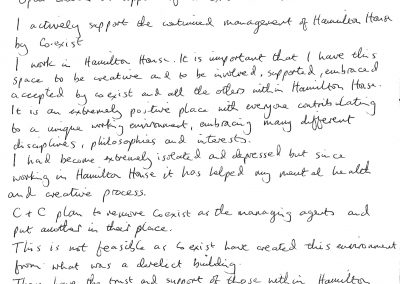 I actively support the continued management of Hamilton House
by Coexist
I work in Hamilton House. It is important that I have this
space to be creative and to be involved, supported, embraced
accepted by coexist and all the others within Hamilton House.
It is an extremely positive place with everyone contributing
to a unique working environment, embracing many different
disciplines, philosophies and interests.
I had become extremely isolated and depressed but since
working in Hamilton House it has helped my mental health
and creative process.
C + C plan to remove Coexist as the managing agents and
put another in their place.
This is not feasible as Coexist have created this environment
from what was a derelict building.
They have the trust and support of those within Hamilton